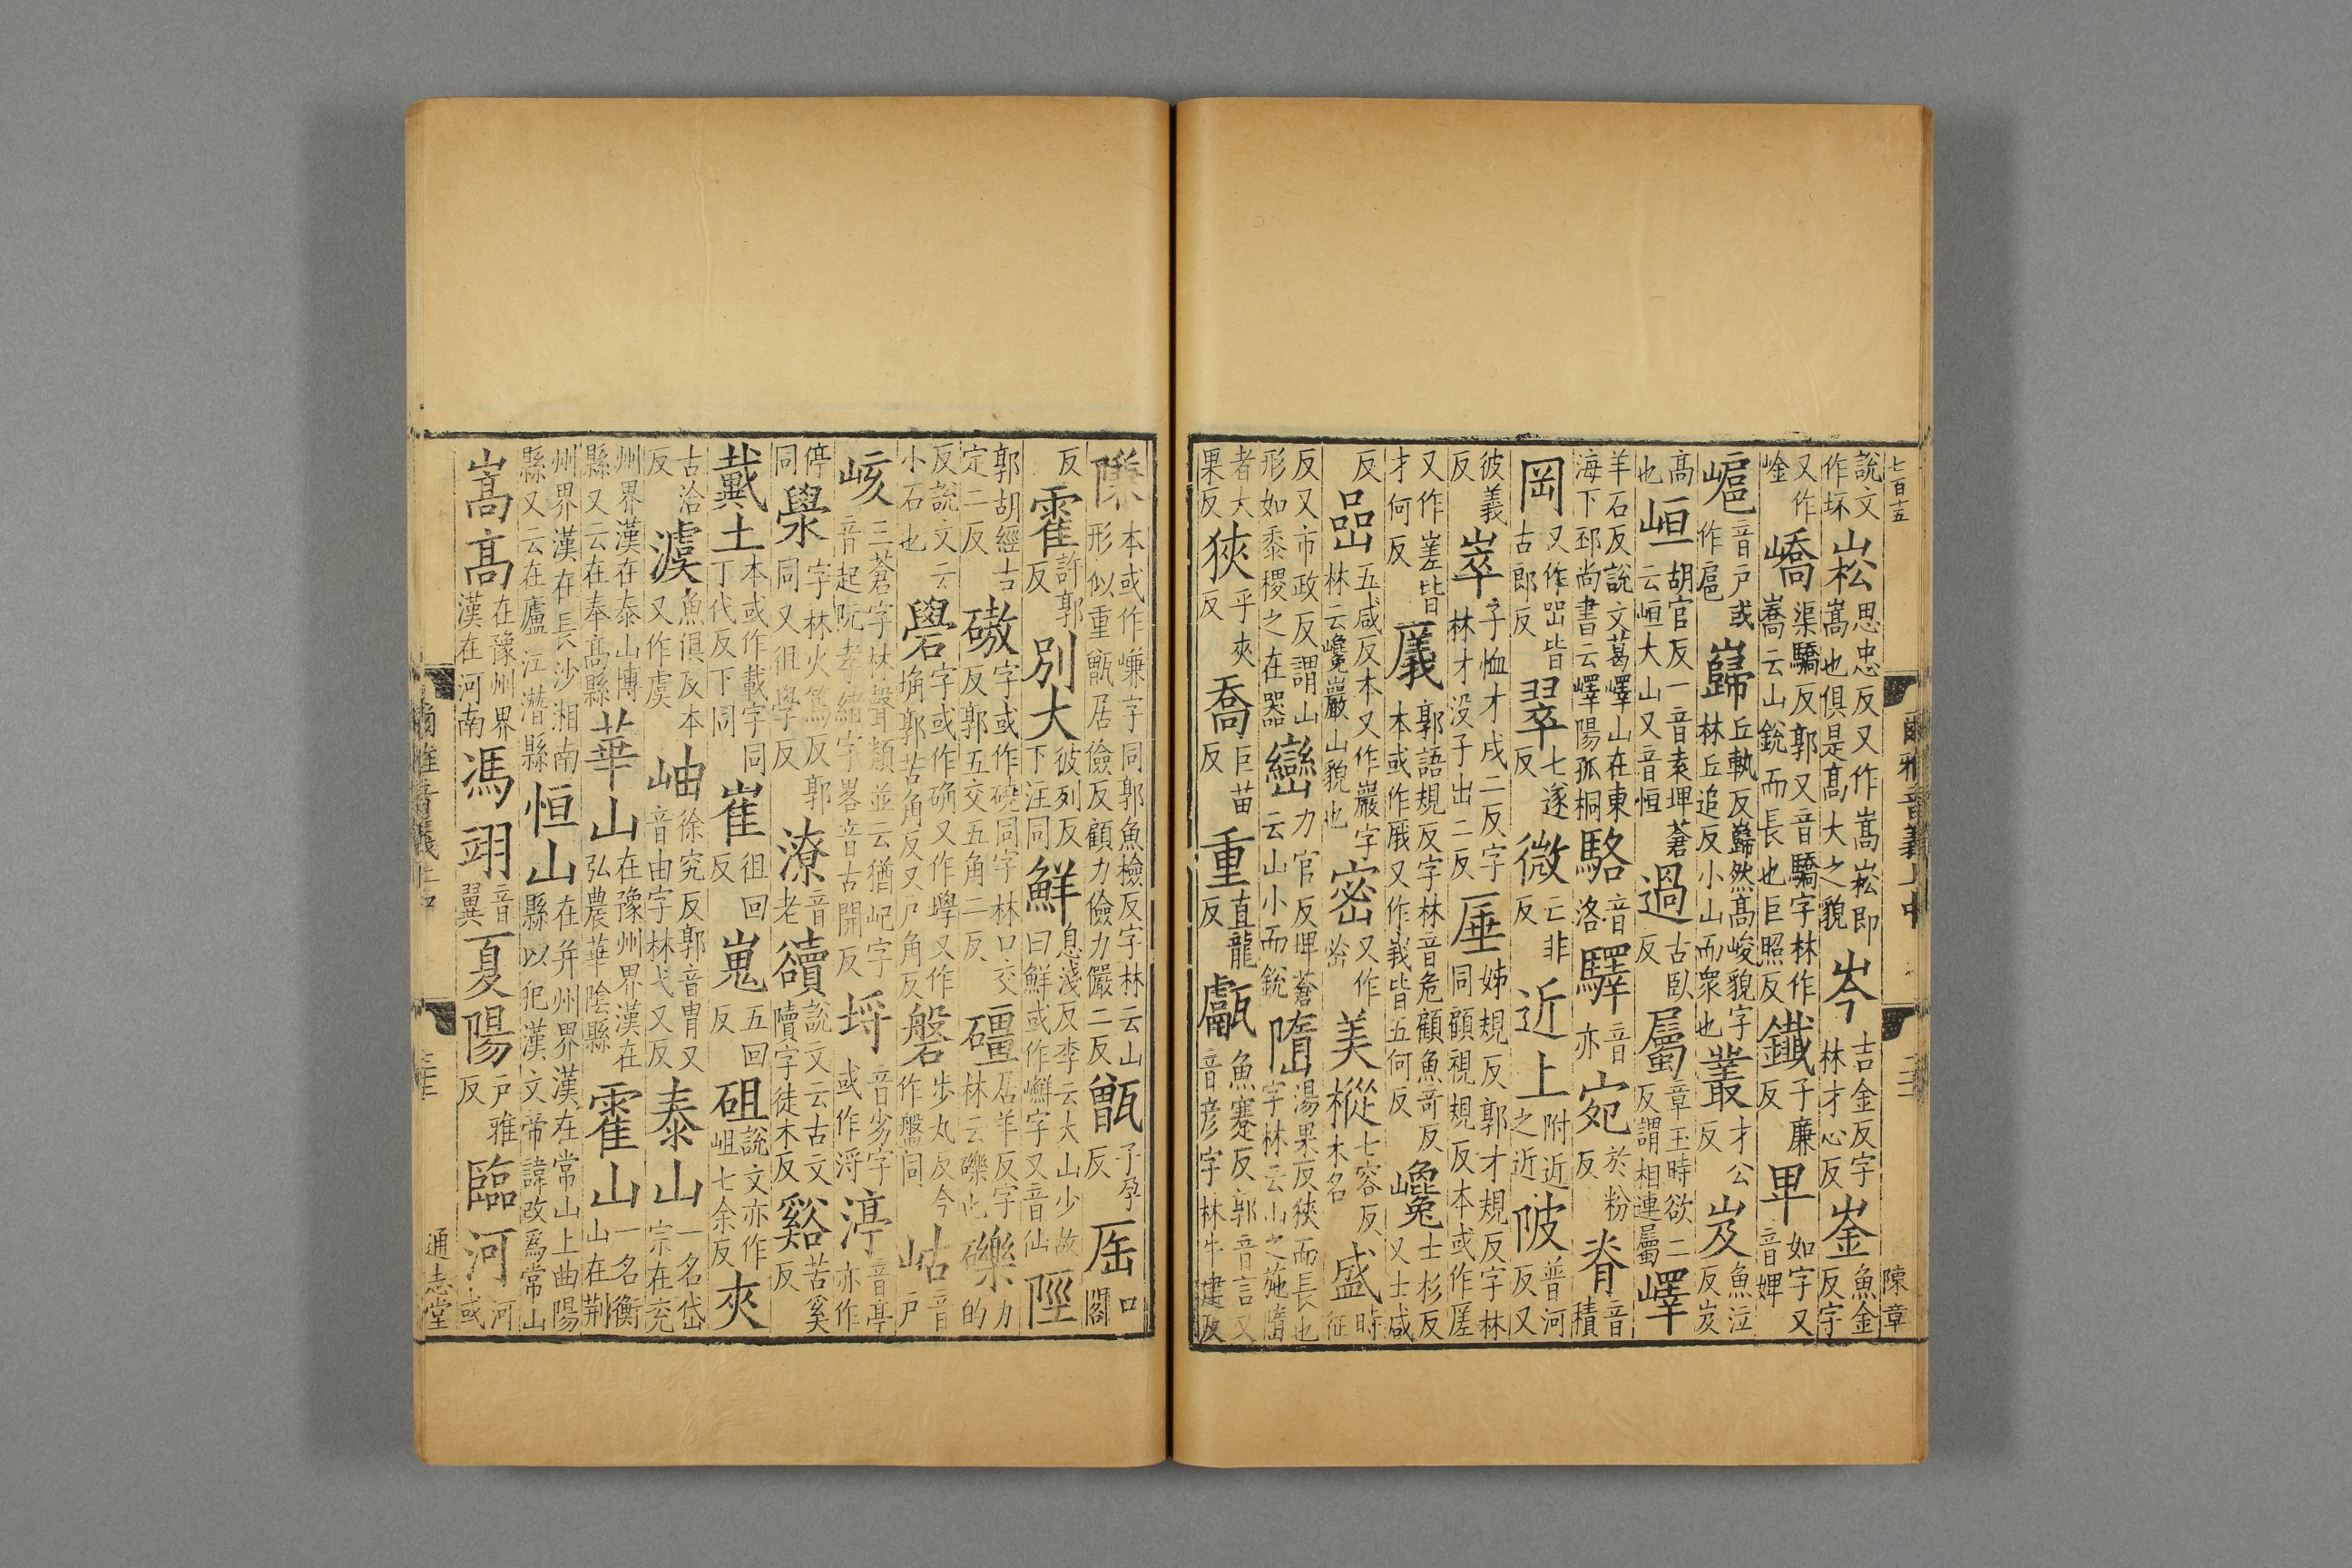 七百十五 爾雅音義上中 陳章
說文作坏 崧 思忠反又作嵩崧即嵩也俱是高大之貌 岑 吉金反字林才心反 崟 魚金反字
又作崯 嶠 渠驕反郭又音驕字林作嶠云山銳而長也巨照反 鐵 子廉反 卑 如字又音婢
嶇 音戶或作扈 巋 丘軌反巋然高峻貌字林丘追反小山而衆也 叢 才公反 岌 魚泣反岌
高也 峘 胡官反一音袁埤蒼云峘大山又音恒 過 古臥反 屬 章玉時欲二反謂相連屬 嶧
羊石反說文葛嶧山在東海下邳尚書云嶧陽孤桐 駱 音洛 驛 音亦 宛 於粉反 脊 音積
岡 又作㟠皆古郎反 翠 七遂反 微 亡非反 近上 附近之近 陂 普河反又
彼義反 崒 子恤才戌二反字林才没子出二反 厜 姊規反郭才規反字林同顧視規反本或作㕒
又作嵳皆才何反 㕒 郭語規反字林音危顧魚奇反本或作厎又作峩皆五何反 巉 士杉反又士咸
反 嵒 五咸反本又作巖字林云巉巖山貌也 密 又作峚 美樅 七容反木名 盛 時征
反又市政反謂山形如黍稷之在器者 巒 力官反埤蒼云山小而銳 隋 湯果反狹而長也字林云山之施隋
者大果反 狹 乎夾反 喬 巨苗反 重 直龍反 甗 魚蹇反郭音言又音彦字林牛建反
隒 本或作㟻字同郭魚檢反字林云山形似重甑居儉反顧力儉力儼二反 甑 子孕反 厓 口閣
反 霍 許郭反 別大 彼列反下注同 鮮 息淺反李云大山少故曰鮮或作嶰字又音仙 陘
郭胡經古定二反 磝 字或作磽同字林口交反郭五交五角二反 礓 居羊反字林云礫也 礫 力的
反說文云小石也 礐 字或作确又作㘒又作埆郭苦角反又户角反 磐 步丸反今作盤同 岵 音户
峐 三蒼字林聲類並云猶屺字音起阮孝緒字畧音古開反 埒 音劣字或作浖 渟 音亭亦作
停同 澩 字林火篤反郭同又徂學反 潦 音老 䜏 說文云古文隫字徒木反 谿 苦奚反
戴土 本或作載字同丁代反下同 崔 徂回反 嵬 五回反 砠 說文亦作岨七余反 夾
古洽反 澞 魚俱反本又作虞 岫 徐究反郭音胄又音由字林弋又反 泰山 一名岱宗在兖
州界漢在泰山博縣又云在奉高縣 華山 在豫州界漢在弘農華陰縣 霍山 一名衡山在荆
州界漢在長沙湘南縣又云在廬江潛縣 恒山 在并州界漢在常山上曲陽縣以犯漢文帝諱改爲常山
嵩高 在豫州界漢在河南 馮翊 音翼 夏陽 户雅反 臨河 河或
通志堂